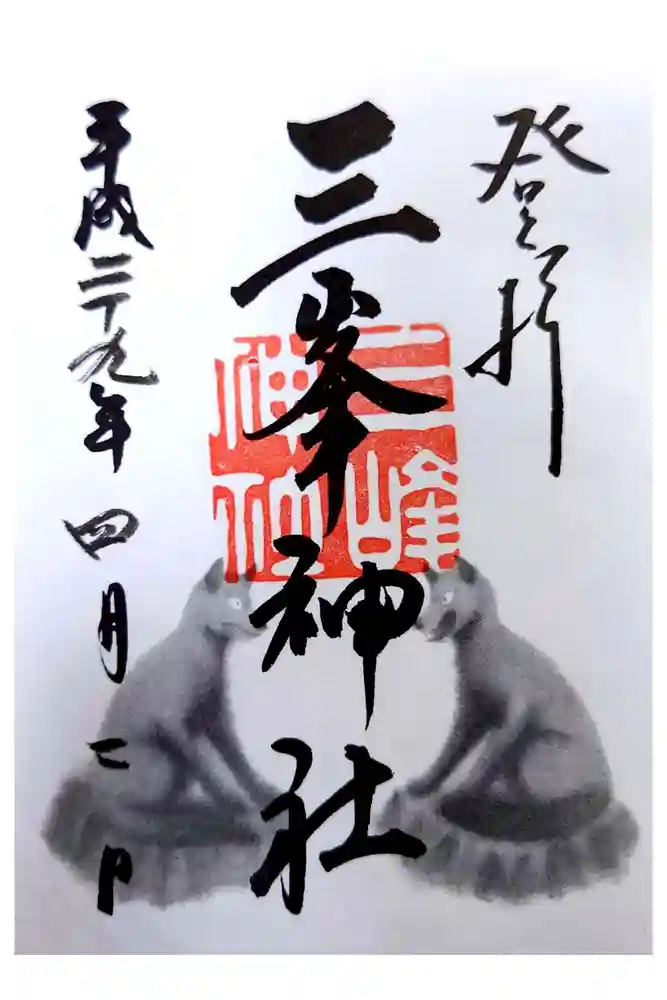 登拝
三峯神社
三峰神社
平成二十九年四月二日